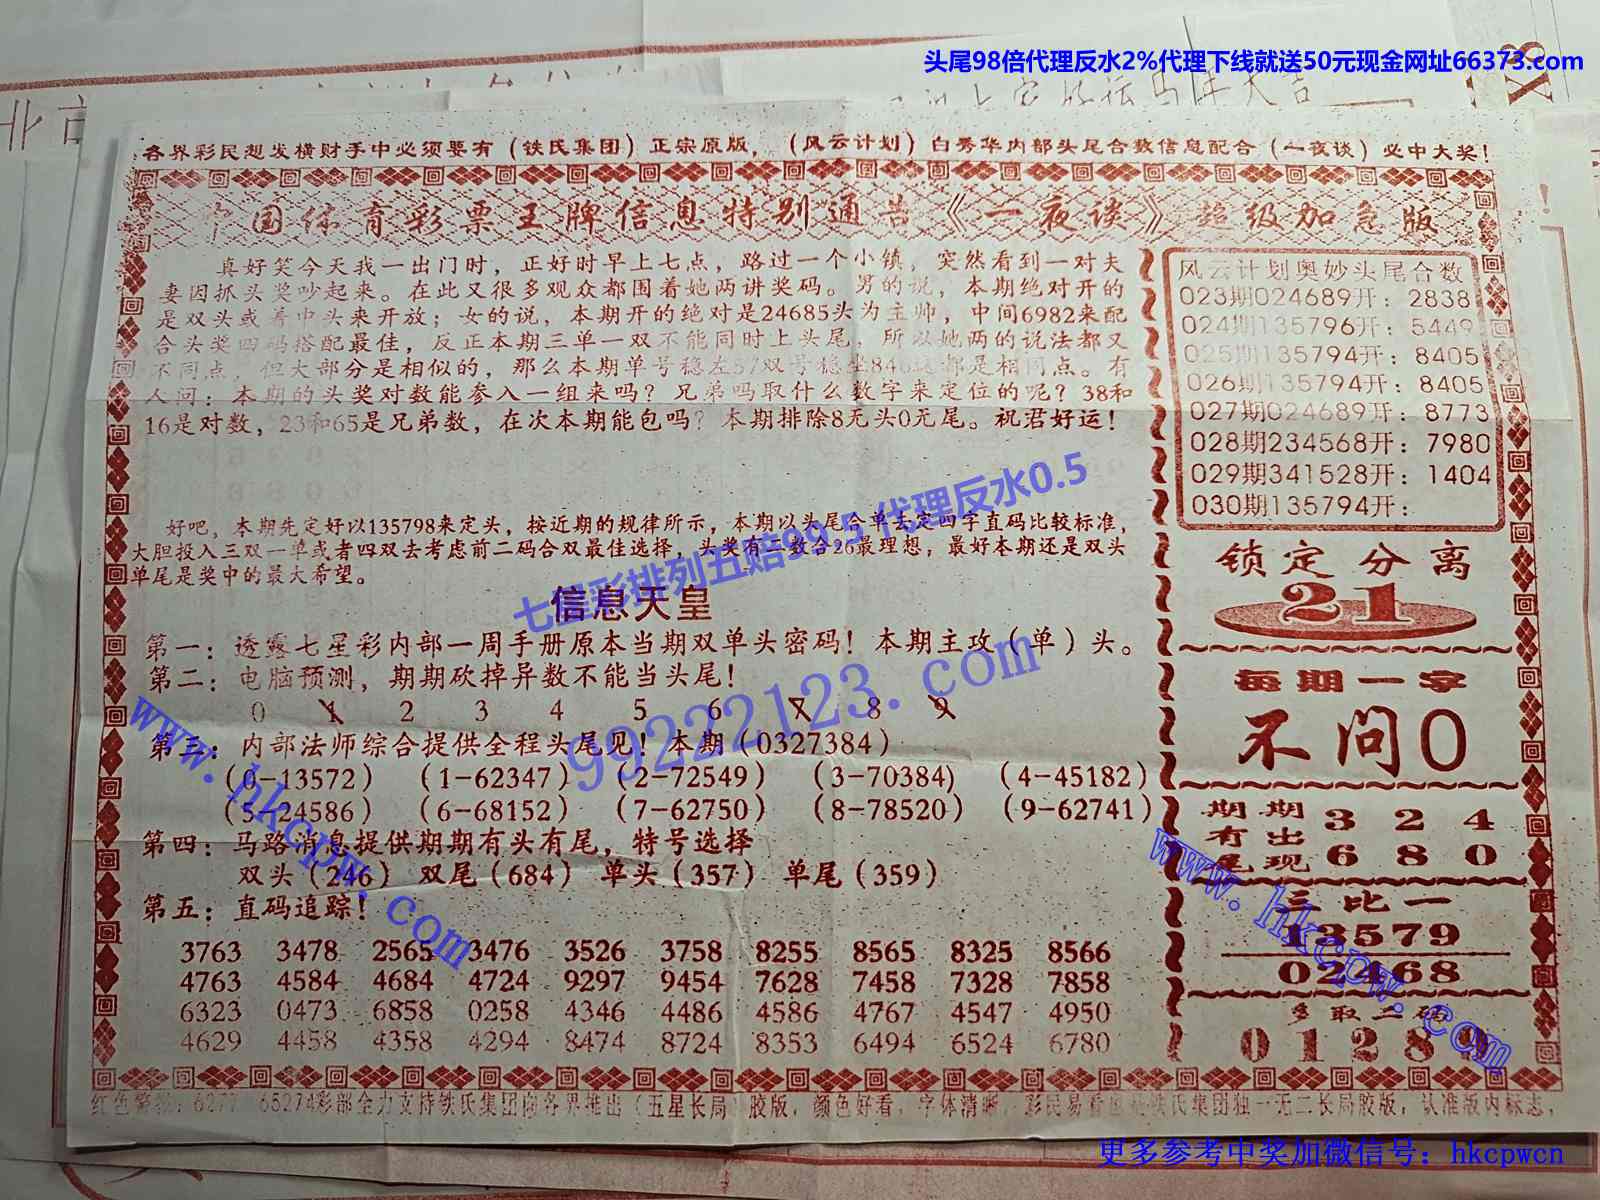 头尾98倍代理反水2%代理下线就送50元现金网址66373.com
各界彩民想发横财手中必须要有（铁氏集团）正宗原版，（风云计划）白秀华内部头尾合数信息配合（一夜谈）必中大奖！
中国体育彩票王牌信息特别通告《一夜谈》超级加急版
真好笑今天我一出门时，正好时早上七点，路过一个小镇，突然看到一对夫
妻因抓头奖吵起来。在此又很多观众都围着她两讲奖码。男的说，本期绝对开的
是双头或着中头来开放；女的说，本期开的绝对是24685头为主帅，中间6982来配
合头奖四码搭配最佳，反正本期三单一双不能同时上头尾，所以她两的说法都又
不同点，但大部分是相似的，那么本期单号稳左57双号稳坐846这都是相同点。有
人问：本期的头奖对数能参入一组来吗？兄弟吗取什么数字来定位的呢？38和
16是对数，23和65是兄弟数，在次本期能包吗？本期排除8无头0无尾。祝君好运！
好吧，本期先定好以135798来定头，按近期的规律所示，本期以头尾合单去定四字直码比较标准，
大胆投入三双一单或者四双去考虑前二码合双最佳选择，头奖有二数合26最理想，最好本期还是双头
单尾是奖中的最大希望。
七星彩排列五赔99.5 代理反水0.5
信息天皇
第一：透露七星彩内部一周手册原本当期双单头密码！本期主攻（单）头。
第二：电脑预测，期期砍掉异数不能当头尾！
0 1 2 3 4 5 6 7 8 9
99222123.com
第三：内部法师综合提供全程头尾见！本期（0327384）
（0-13572）（1-62347）（2-72549）（3-70384）（4-45182）
（5-24586）（6-68152）（7-62750）（8-78520）（9-62741）
第四：马路消息提供期期有头有尾，特号选择
双头（246） 双尾（684） 单头（357） 单尾（359）
第五：直码追踪！
3763 3478 2565 3476 3526 3758 8255 8565 8325 8566
4763 4584 4684 4724 9297 9454 7628 7458 7328 7858
6323 0473 6858 0258 4346 4486 4586 4767 4547 4950
4629 4458 4358 4294 8474 8724 8353 6494 6524 6780
www.hkcpw.com
风云计划奥妙头尾合数
023期024689开：2838
024期135796开：5449
025期135794开：8405
026期135794开：8405
027期024689开：8773
028期234568开：7980
029期341528开：1404
030期135794开：
锁定分离
21
每期一字
不问0
期期 3 2 4
有出
尾现 6 8 0
三比一
13579
02468
多取二码
01289
www.hkcpw.com
红色警报：6277 65274彩部全力支持铁氏集团向各界推出（五星长局）胶版，颜色好看，字体清晰，彩民易看也是铁氏集团独一无二长局胶版，认准版内标志，
更多参考中奖加微信号：hkcpwcn